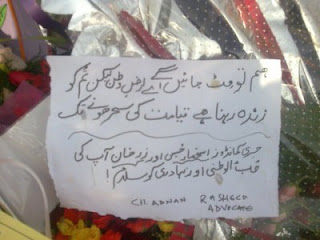 ہم تو مٹ جائیں گے اے ارض وطن لیکن تم کو
زندہ رہنا ہے قیامت کی سحر ہونے تک
کمانڈوز اور زر خان آپ کی
حب الوطنی اور بہادری کو سلام!
CH. ADNAN RASHEED
ADVOCATE